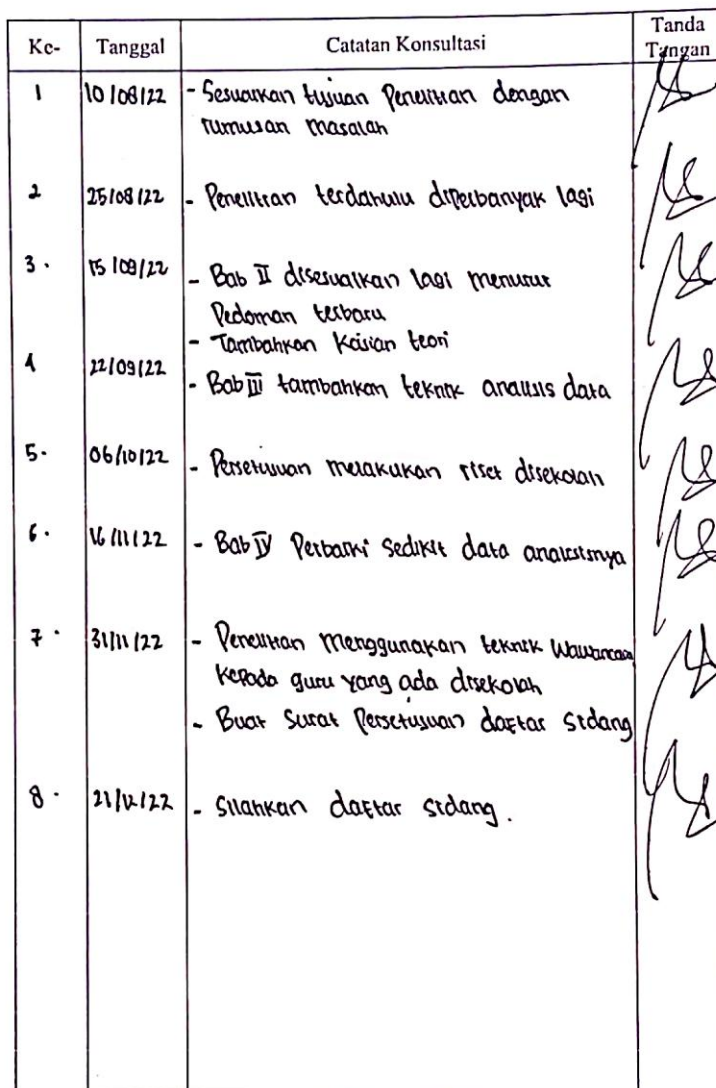 Ke- Tanggal Catatan Konsultasi Tanda Tangan
1 10/08/22 - Sesuaikan tujuan Penelitian dengan
rumusan masalah
2 25/08/22 - Penelitian terdahulu diperbanyak lagi
3. 15/09/22 - Bab II disesuaikan lagi menurut
Pedoman terbaru
- Tambahkan Kajian teori
4 22/09/22 - Bab III tambahkan teknik analisis data
5. 06/10/22 - Persetujuan melakukan riset disekolah
6. 16/11/22 - Bab IV Perbaiki sedikit data analisisnya
7. 31/11/22 - Penelitian menggunakan teknik Wawancara
Kepada guru yang ada disekolah
- Buat Surat Persetujuan daftar sidang
8. 21/12/22 - Silahkan daftar sidang.